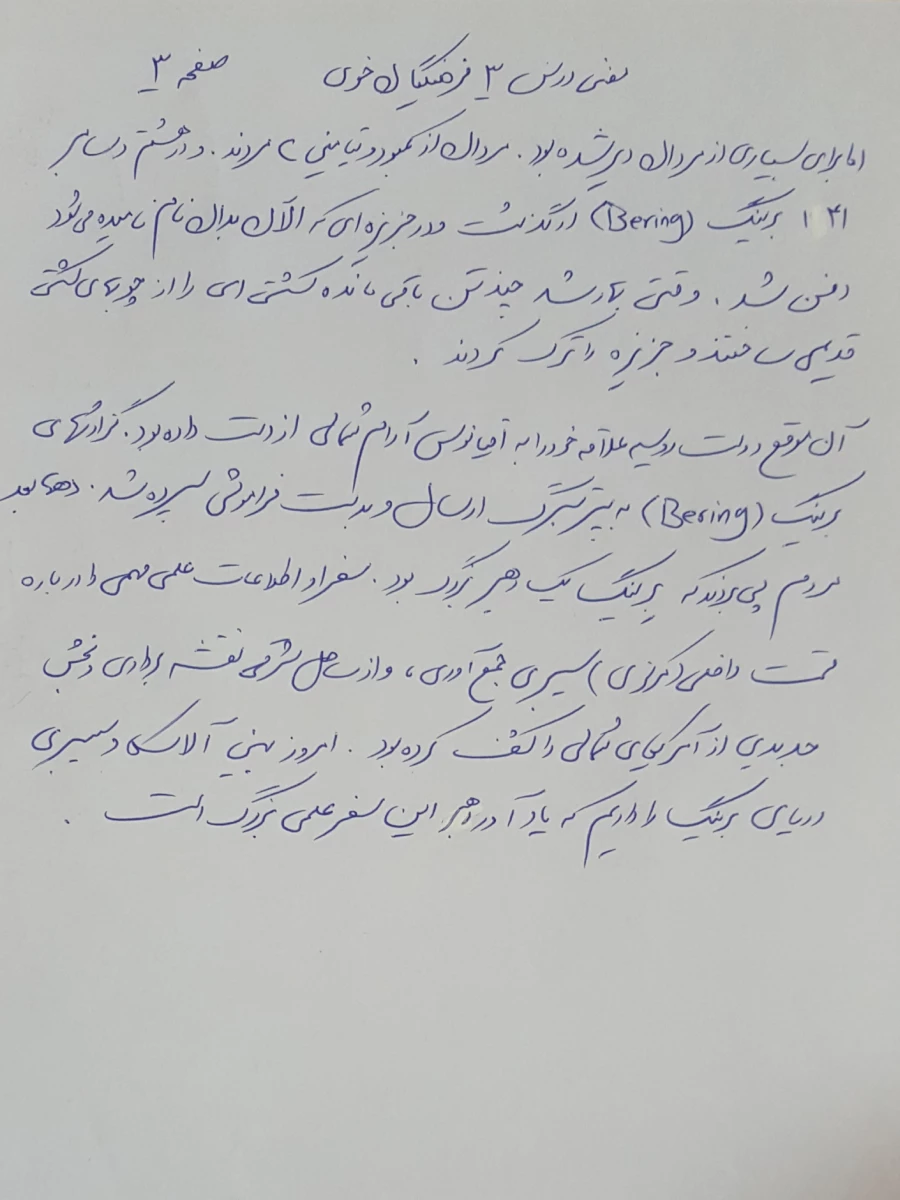 معنی درس ۳ فرهنگیان خوی صفحه ۳
اما برای بسیاری از مردان دیر شده بود . مردان از کمبود ویتامین c مردند . و در هشتم دسامبر
۱۷۴۱ برینگ (Bering) درگذشت و در جزیره ای که الآن بدان نام نامیده می شود
دفن شد . وقتی بهار شد چند تن باقی مانده کشتی ای را از چوبهای کشتی
قدیمی ساختند و جزیره را ترک کردند .
آن موقع دولت روسیه علاقه خود را به اقیانوس آرام شمالی از دست داده بود . گزارشهای
برینگ (Bering) به پترزبرگ ارسال و بدست فراموشی سپرده شد . دهها بعد
مردم پی بردند که برینگ یک رهبر بزرگ بود . سفر او اطلاعات علمی مهمی را درباره
قسمت داخلی (مرکزی) سیبری جمع آوری ، و از ساحل شرقی نقشه برداری و بخش
جدیدی از آمریکای شمالی را کشف کرده بود . امروز بین آلاسکا و سیبری
دریای برینگ را داریم که یادآور رهبر این سفر علمی بزرگ است .